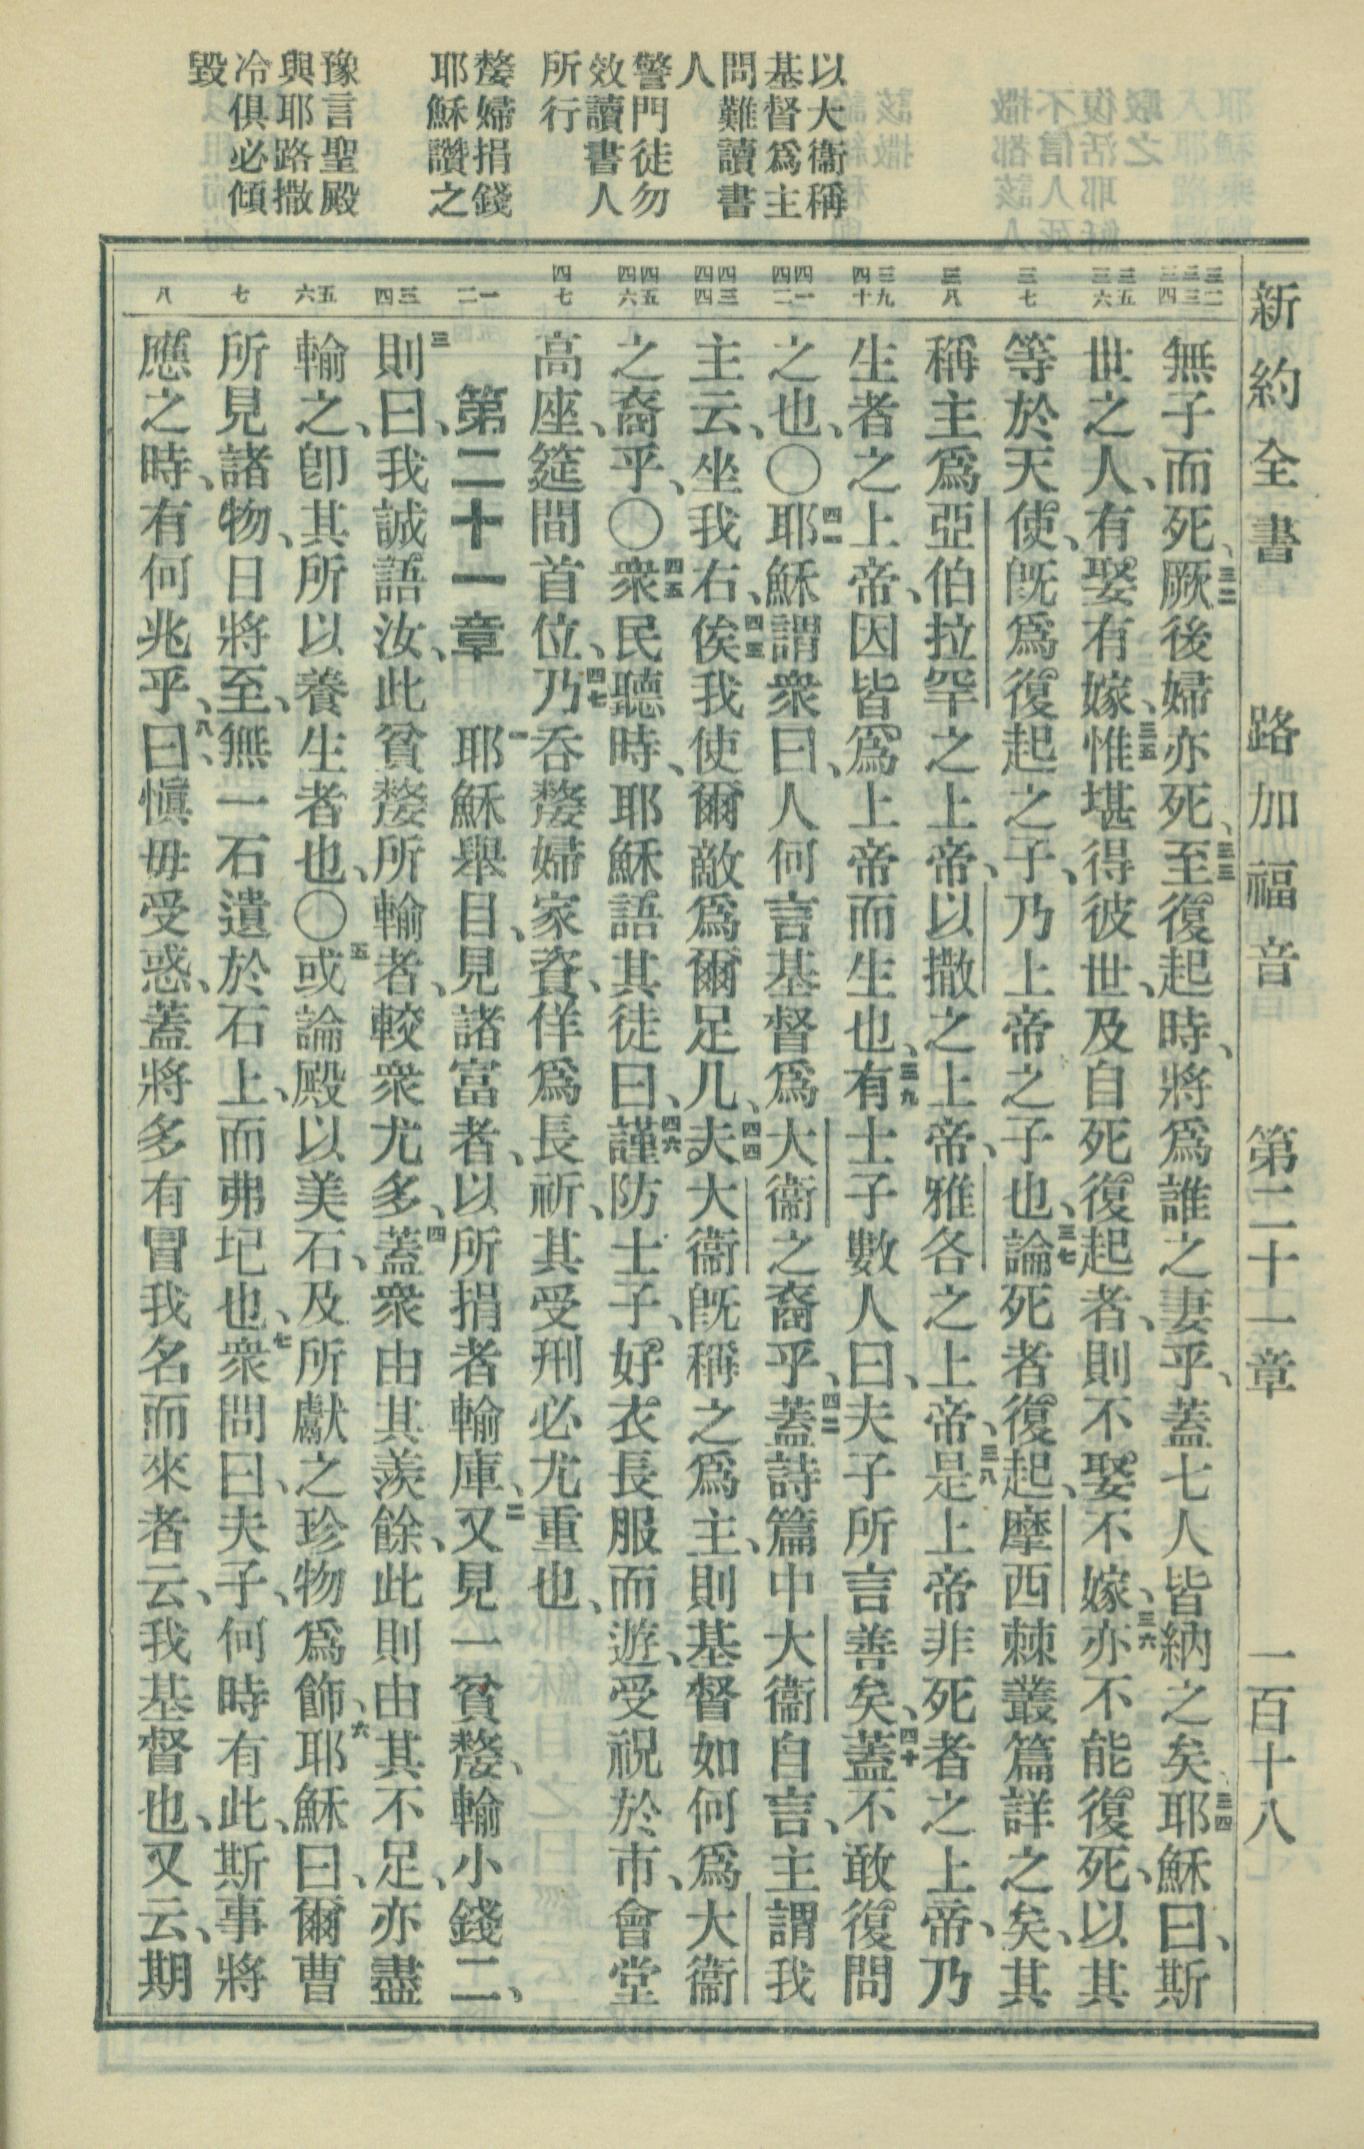 新約全書 路加福音 第二十一章 一百十八
以大衞稱
基督爲主
問難讀書
人
警門徒勿
效讀書人
所行
嫠婦捐錢
耶穌讚之
豫言聖殿
與耶路撒
冷俱必傾
毀
三二 三三 三四
三五 三六
三七
三八
三九 四十
四一 四二
四三 四四
四五 四六
四七
一 二
三 四
五 六
七
八
無子而死、三二厥後婦亦死、三三至復起時、將爲誰之妻乎、蓋七人皆納之矣、三四耶穌曰、斯
世之人、有娶有嫁、三五惟堪得彼世、及自死復起者、則不娶不嫁、三六亦不能復死、以其
等於天使、旣爲復起之子、乃上帝之子也、三七論死者復起、摩西棘叢篇詳之矣、其
稱主爲亞伯拉罕之上帝、以撒之上帝、雅各之上帝、三八是上帝非死者之上帝、乃
生者之上帝、因皆爲上帝而生也、三九有士子數人曰、夫子所言善矣、四十蓋不敢復問
之也、〇四一耶穌謂衆曰、人何言基督爲大衞之裔乎、四二蓋詩篇中大衞自言、主謂我
主云、坐我右、四三俟我使爾敵爲爾足几、四四夫大衞旣稱之爲主、則基督如何爲大衞
之裔乎、〇四五衆民聽時、耶穌語其徒曰、四六謹防士子、好衣長服而遊、受祝於市、會堂
高座、筵間首位、四七乃呑嫠婦家資、佯爲長祈、其受刑必尤重也、
第二十一章 一耶穌舉目、見諸富者、以所捐者輸庫、二又見一貧嫠、輸小錢二、
三則曰、我誠語汝、此貧嫠所輸者、較衆尤多、四蓋衆由其羨餘、此則由其不足、亦盡
輸之、卽其所以養生者也、〇五或論殿以美石、及所獻之珍物爲飾、六耶穌曰、爾曹
所見諸物、日將至、無一石遺於石上、而弗圮也、七衆問曰、夫子、何時有此、斯事將
應之時、有何兆乎、八曰、愼毋受惑、蓋將多有冒我名而來者云、我基督也、又云、期